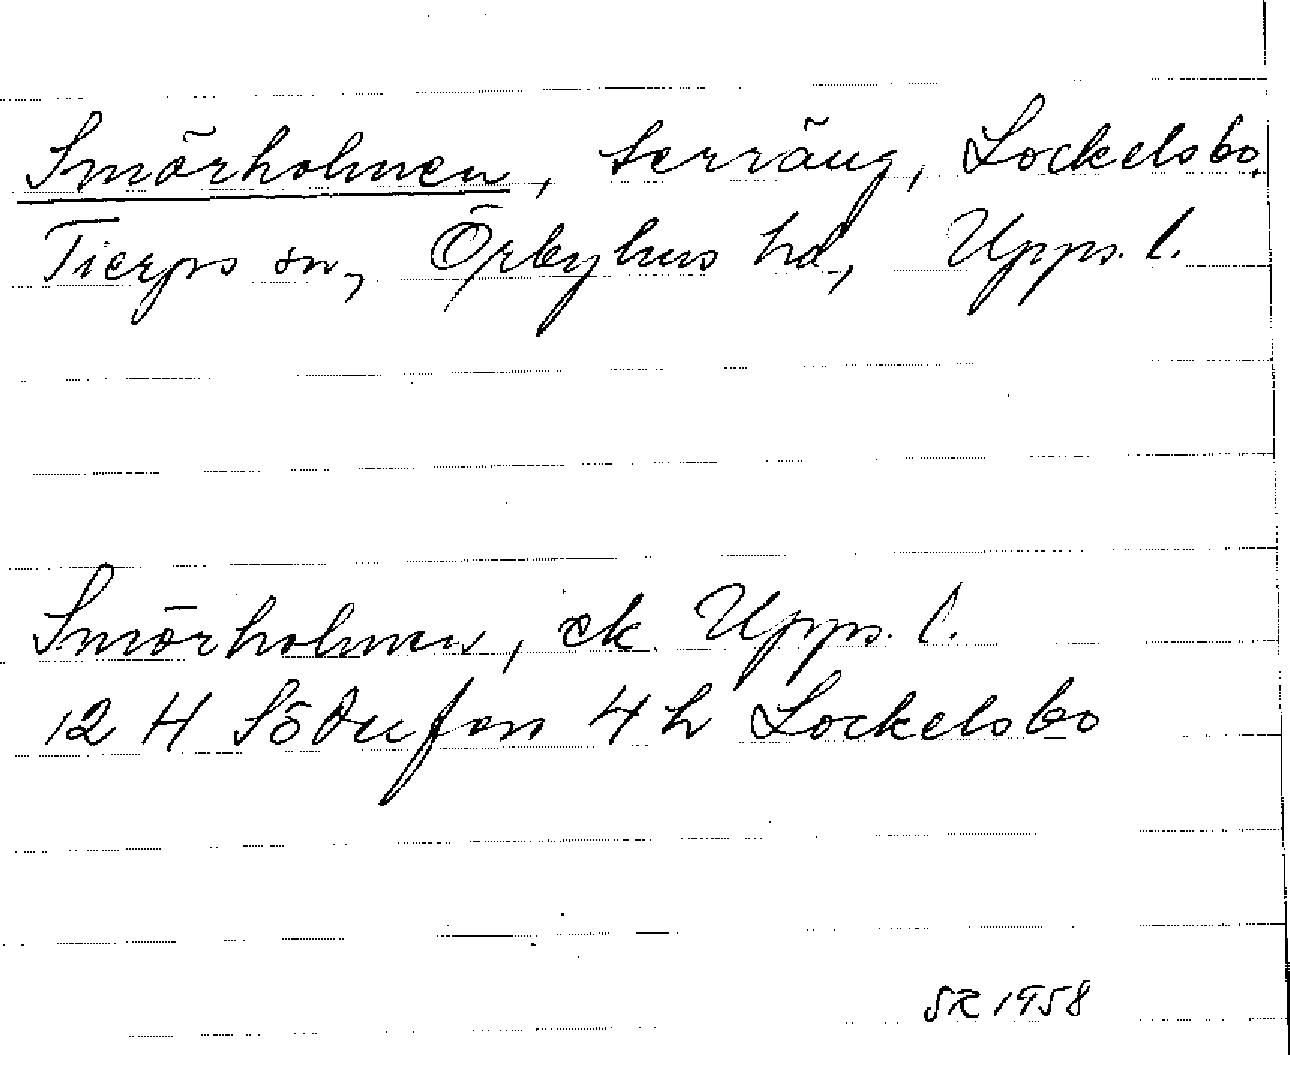 Smörholmen, terräng, Lockelsbo.
Tierps sn, Örbyhus hd, Upps. l.
Smörholmen, ek Upps. l.
12 H Söderfors 4 h Lockelsbo
SR 1958